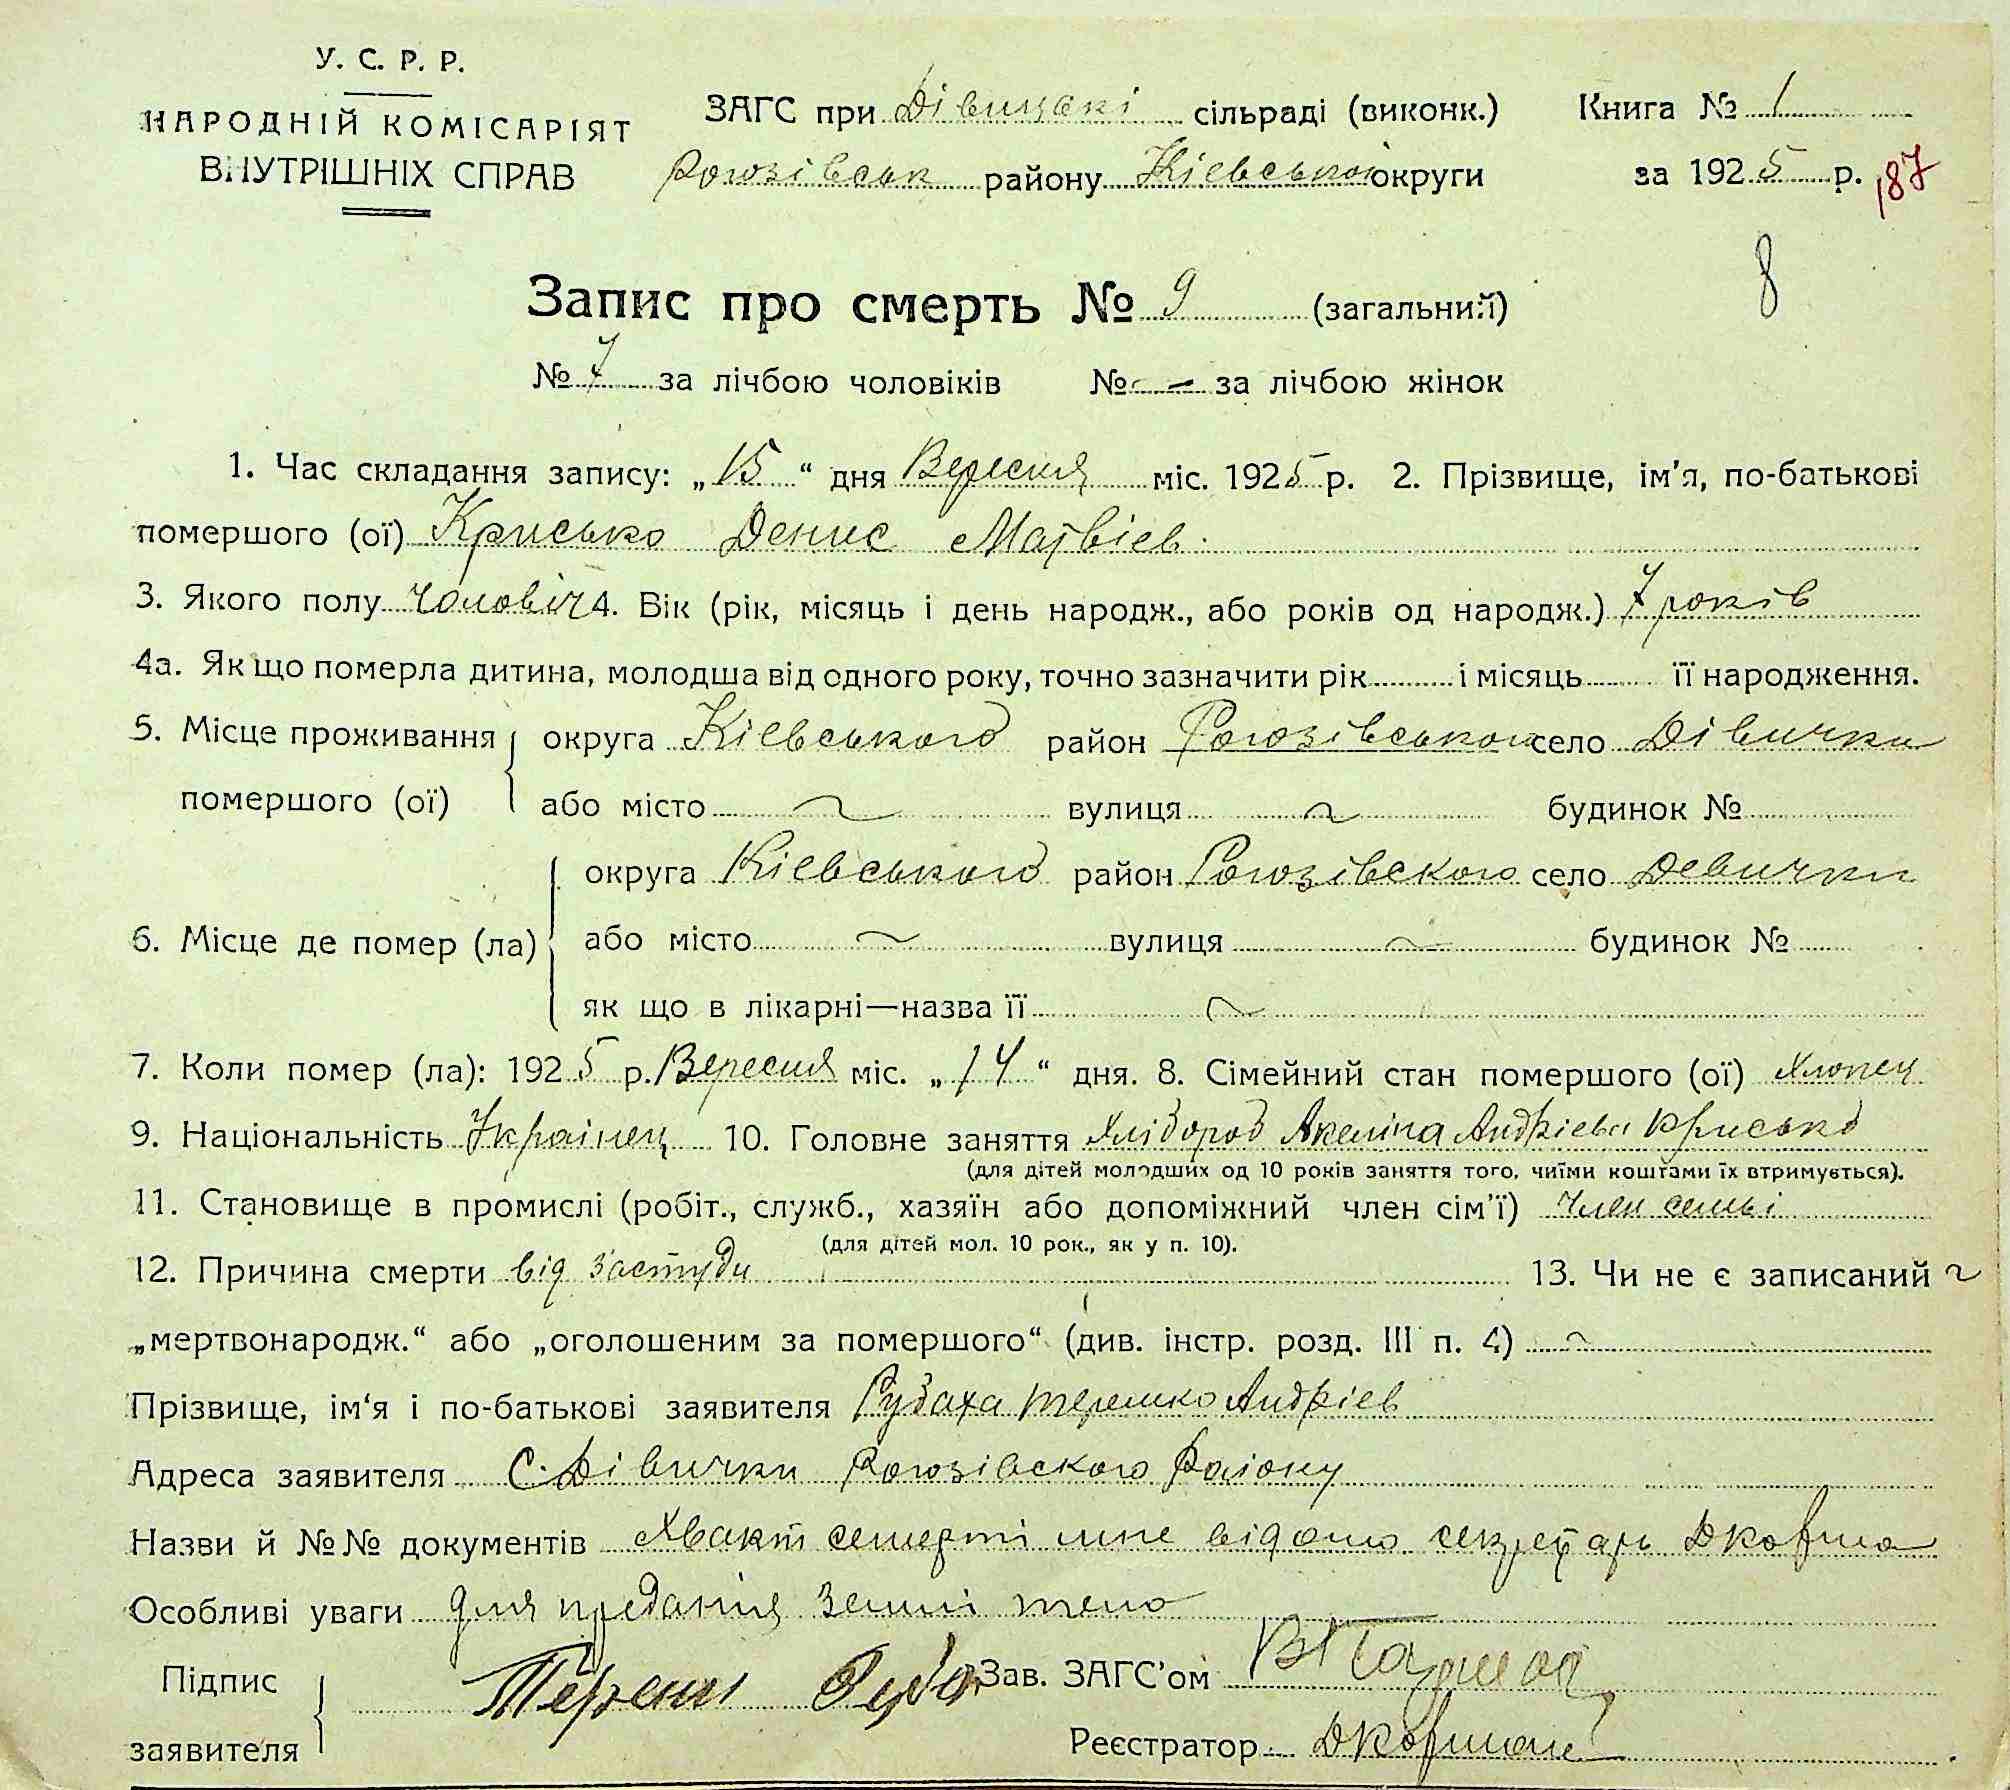 У. С. Р. Р.
НАРОДНІЙ КОМІСАРІЯТ
ВНУТРІШНІХ СПРАВ
ЗАГС при Дівицькі сільраді (виконк.) Книга № 1
Рогозівськ району Кіевської округи за 1925 р. 187
8
Запис про смерть № 9 (загальний)
№ 7 за лічбою чоловіків № — за лічбою жінок
1. Час складання запису: „15“ дня Вересня міс. 1925 р. 2. Прізвище, ім'я, по-батькові
помершого (ої) Крисько Денис Матвіев.
3. Якого полу чоловіч 4. Вік (рік, місяць і день народж., або років од народж.) 7 років
4а. Як що померла дитина, молодша від одного року, точно зазначити рік і місяць її народження.
5. Місце проживання округа Кіевського район Рогозівського село Дівички
помершого (ої) або місто ~ вулиця ~ будинок №
округа Кіевського район Рогозівского село Девички
6. Місце де помер (ла) або місто ~ вулиця ~ будинок №
як що в лікарні—назва її ~
7. Коли помер (ла): 1925 р. Вересня міс. „14“ дня. 8. Сімейний стан помершого (ої) хлопец
9. Національність Украінец 10. Головне заняття Хлібороб Акеліна Андріева Крисько
(для дітей молодших од 10 років заняття того, чиїми коштами їх втримується).
11. Становище в промислі (робіт., служб., хазяїн або допоміжний член сім'ї) член семьі
(для дітей мол. 10 рок., як у п. 10).
12. Причина смерти від застуди 13. Чи не є записаний ~
„мертвонародж.“ або „оголошеним за помершого“ (див. інстр. розд. III п. 4) ~
Прізвище, ім'я і по-батькові заявителя Рубаха Терешко Андріев
Адреса заявителя С. Дівички Рогозівского Раіону
Назви й №№ документів Хвакт семерті мне відомо секретарь ДКовша
Особливі уваги для предания Землі тело
Підпис
заявителя
Терешк Руба Зав. ЗАГС'ом
Реєстратор